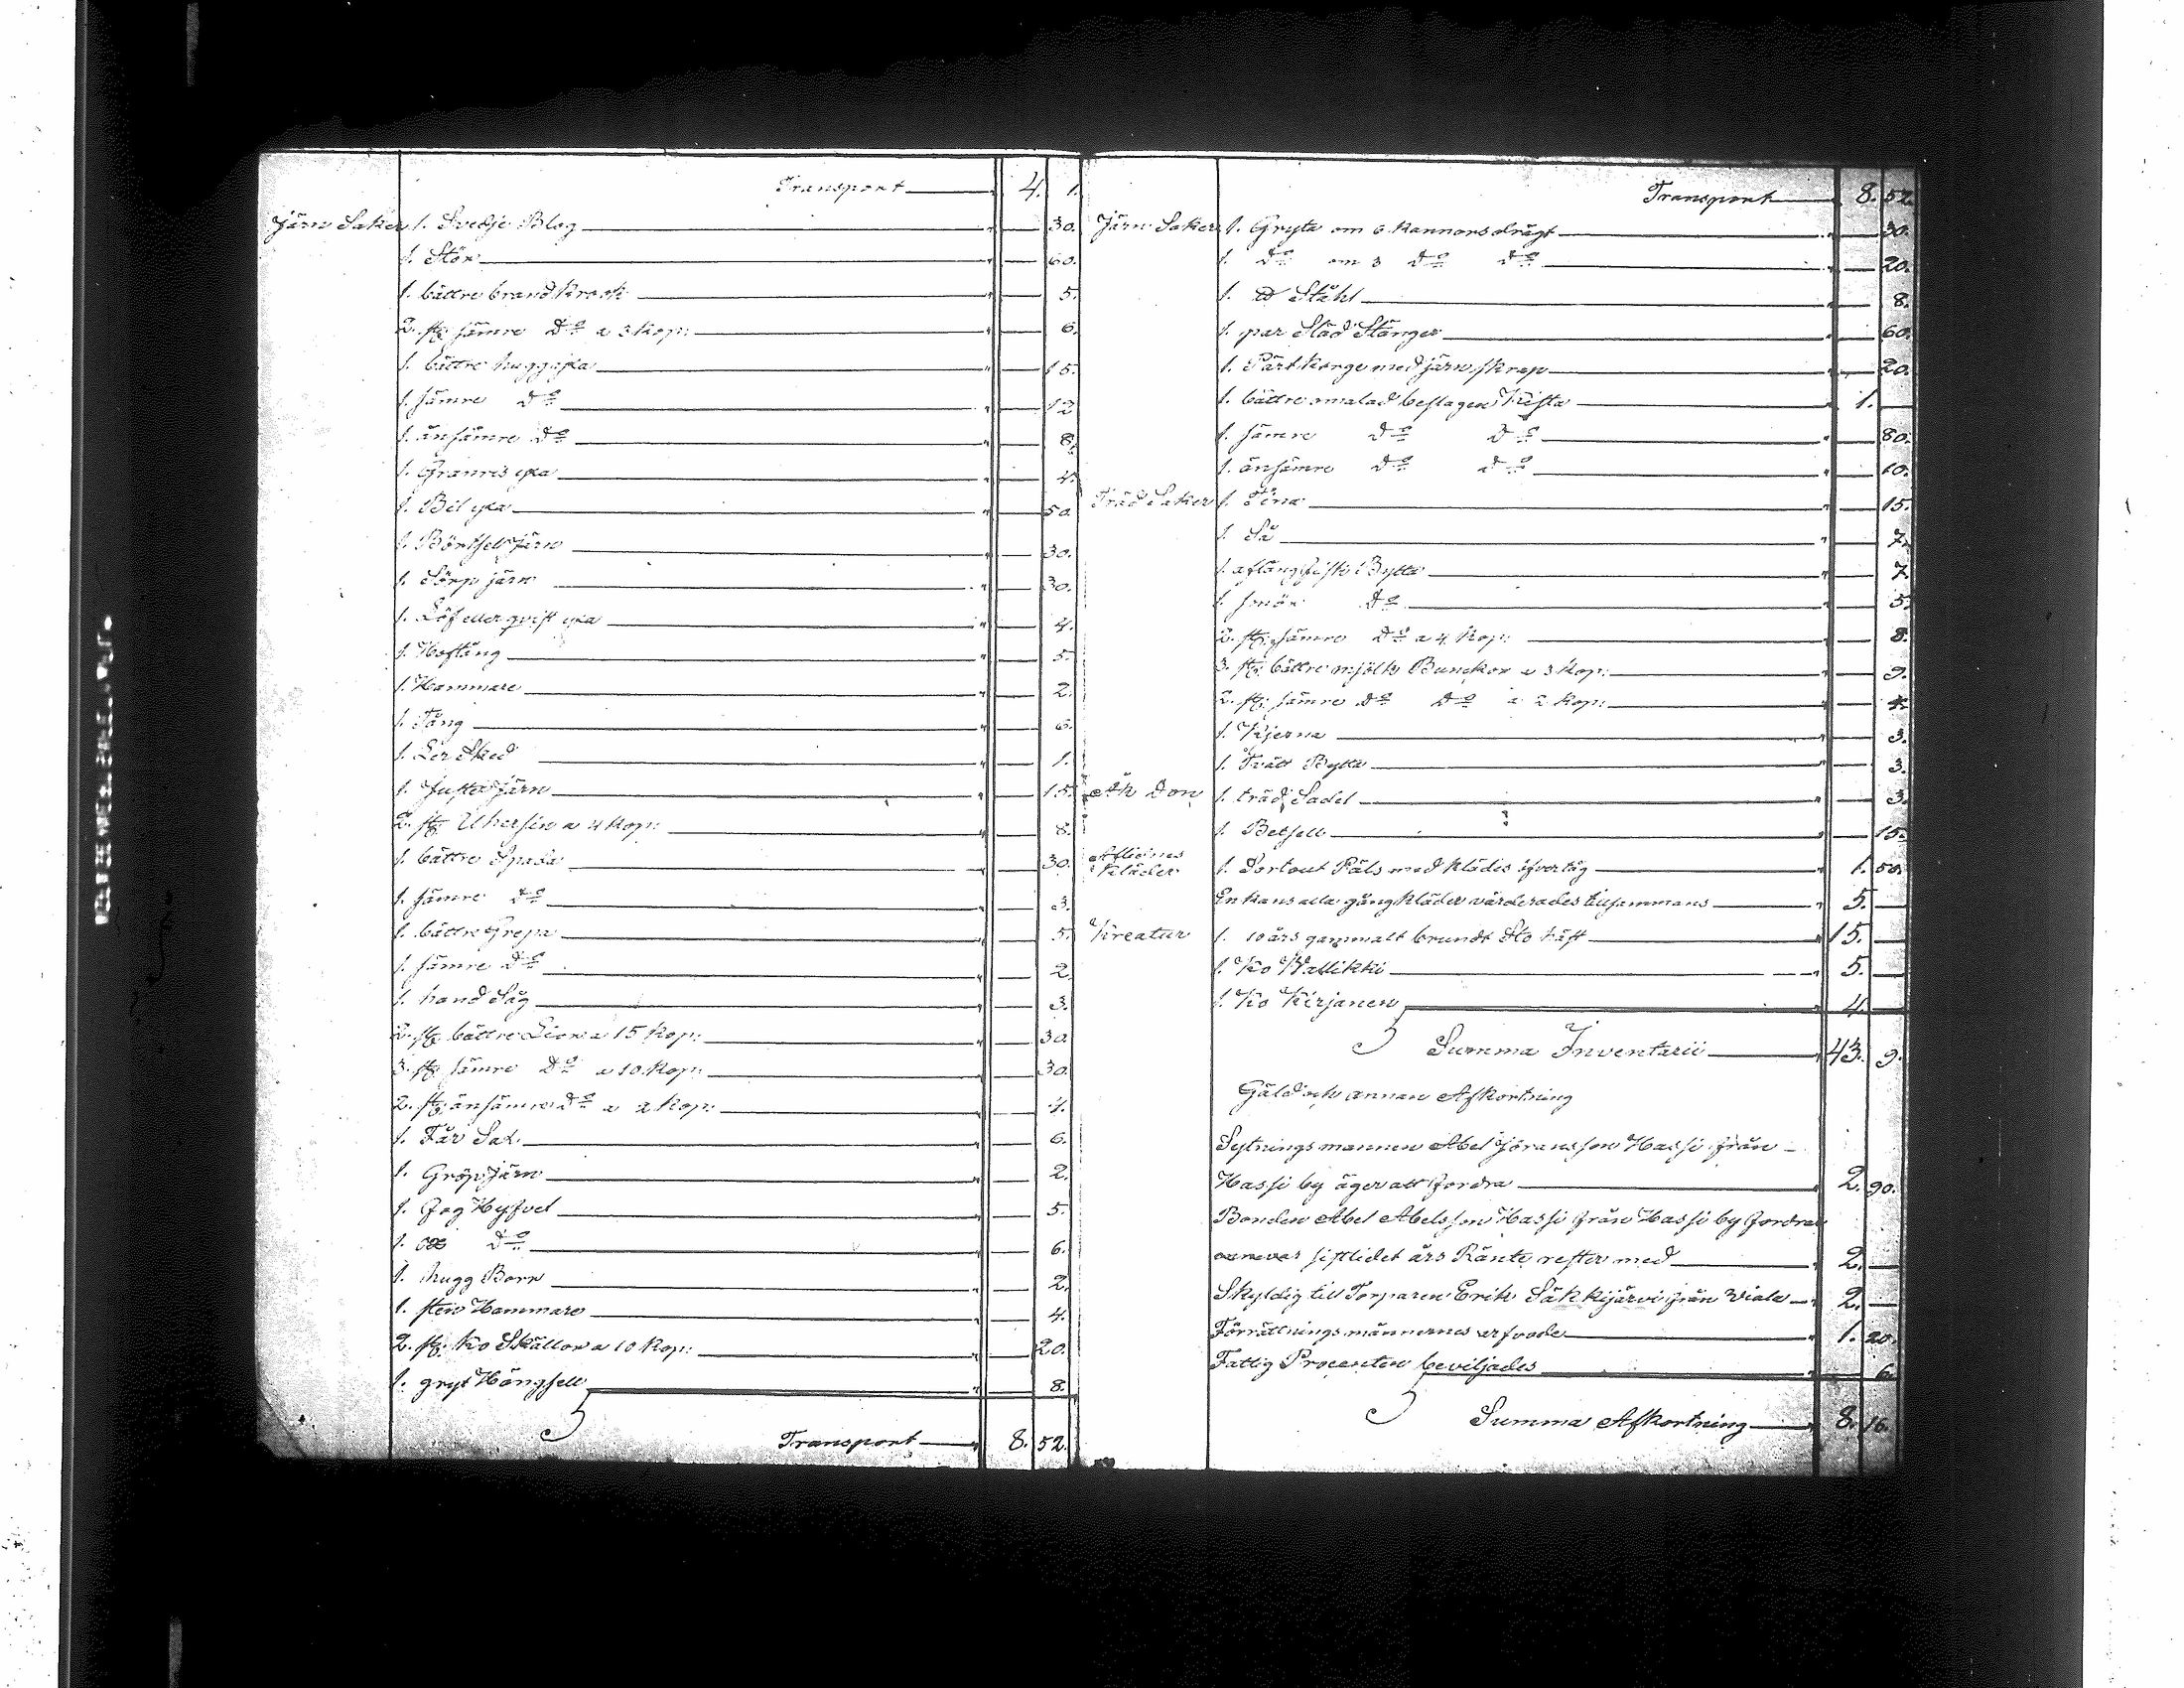 Transport 4. 1.
Järn Saker 1. Svedje Blog 30.
1. Stör 60.
1. bättre brand Krook 5.
2. st: sämre do a 3 Kop: 6.
1. bättre huggyxa 15.
1. sämre do 12
1. än sämre do 8.
1. Granris yxa 4.
1. Bil yxa 50.
1. järn 30.
1. Sörp järn 30.
1. Löf eller qvist yxa 4.
1. Hoftång 5.
1. Hammare 2.
1. Tång 6.
1. Ler Sked 1.
1. järn 15.
2. st: a 4 Kop: 8.
1. bättre Spada 30.
1. sämre do 3.
1. bättre Grepa 5.
1. sämre do 2
1. hand Såg 3.
2. st: bättre Lior a 15 Kop: 30
3. st: sämre do a 10 Kop: 30.
2. st: än sämre do a 2 Kop: 4.
1. Får Sax 6.
1. Gröpjärn 2.
1. Fog Hyfvel 5.
1. do 6.
1. hugg Borr 2.
1. sten Hammare 4.
2. st: Ko Skällor a 10 Kop: 20.
1. gryt Hängsell 8.
Transport 8. 52.
Transport 8. 52.
Järn Saker 1. Gryta om 6 Kannors drägt 30.
1. do om 3 do do 20.
1. Stähl 8.
1. par Släd Stänger 60.
1. Pärt Korge med järn skrap 20.
1. bättre omalad beslagen Kista 1.
1. sämre do do 80.
1. än sämre do do 10.
Träd Saker 1. Tina 15.
1. Så 7.
1. aflång Bytta 7.
1. smör do 5.
2. st: sämre do a 4 Kop: 8.
3. st: bättre mjölks Bunckor a 3 Kop: 9.
2. st: sämre do do a 2 Kop: 4.
1. Kjerna 3.
1. Tvätt Bytta 3.
Åk Don 1. träd Sadel 3.
1. Betsell 15.
Aflidnes Kläder 1. Sortout Päls med Klädis öfvertåg 1. 50.
En hans alla gång Kläder värderades tillsammans 5.
Kreatur 1. 10 års gammalt brundt Sto häst 15.
1. Ko Wallikki 5.
1. Ko Kirjanen 4.
Summa Inventarii 43. 9.
Gäld och annan Afkortning
Sytningsmannen Abel Göransson Hassi från
Hassi by äger att fordra 2. 90.
Bonden Abel Abelsson Hassi från Hassi by fordrar
sistlidet års Ränte rester med 2.
Skyldig till Torparen Erik Säkkijärvi från Wiala 2.
Förrättningsmännernes arfvode 1. 20.
Fattig Procenten beviljades 6.
Summa Afkortning 8. 16.